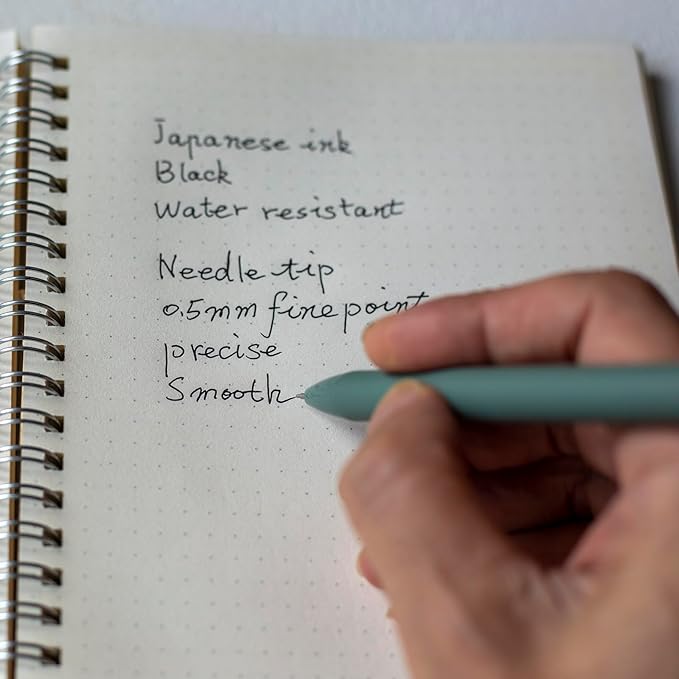 Japanese ink
Black
Water resistant
Needle tip
0.5mm fine point
precise
Smooth